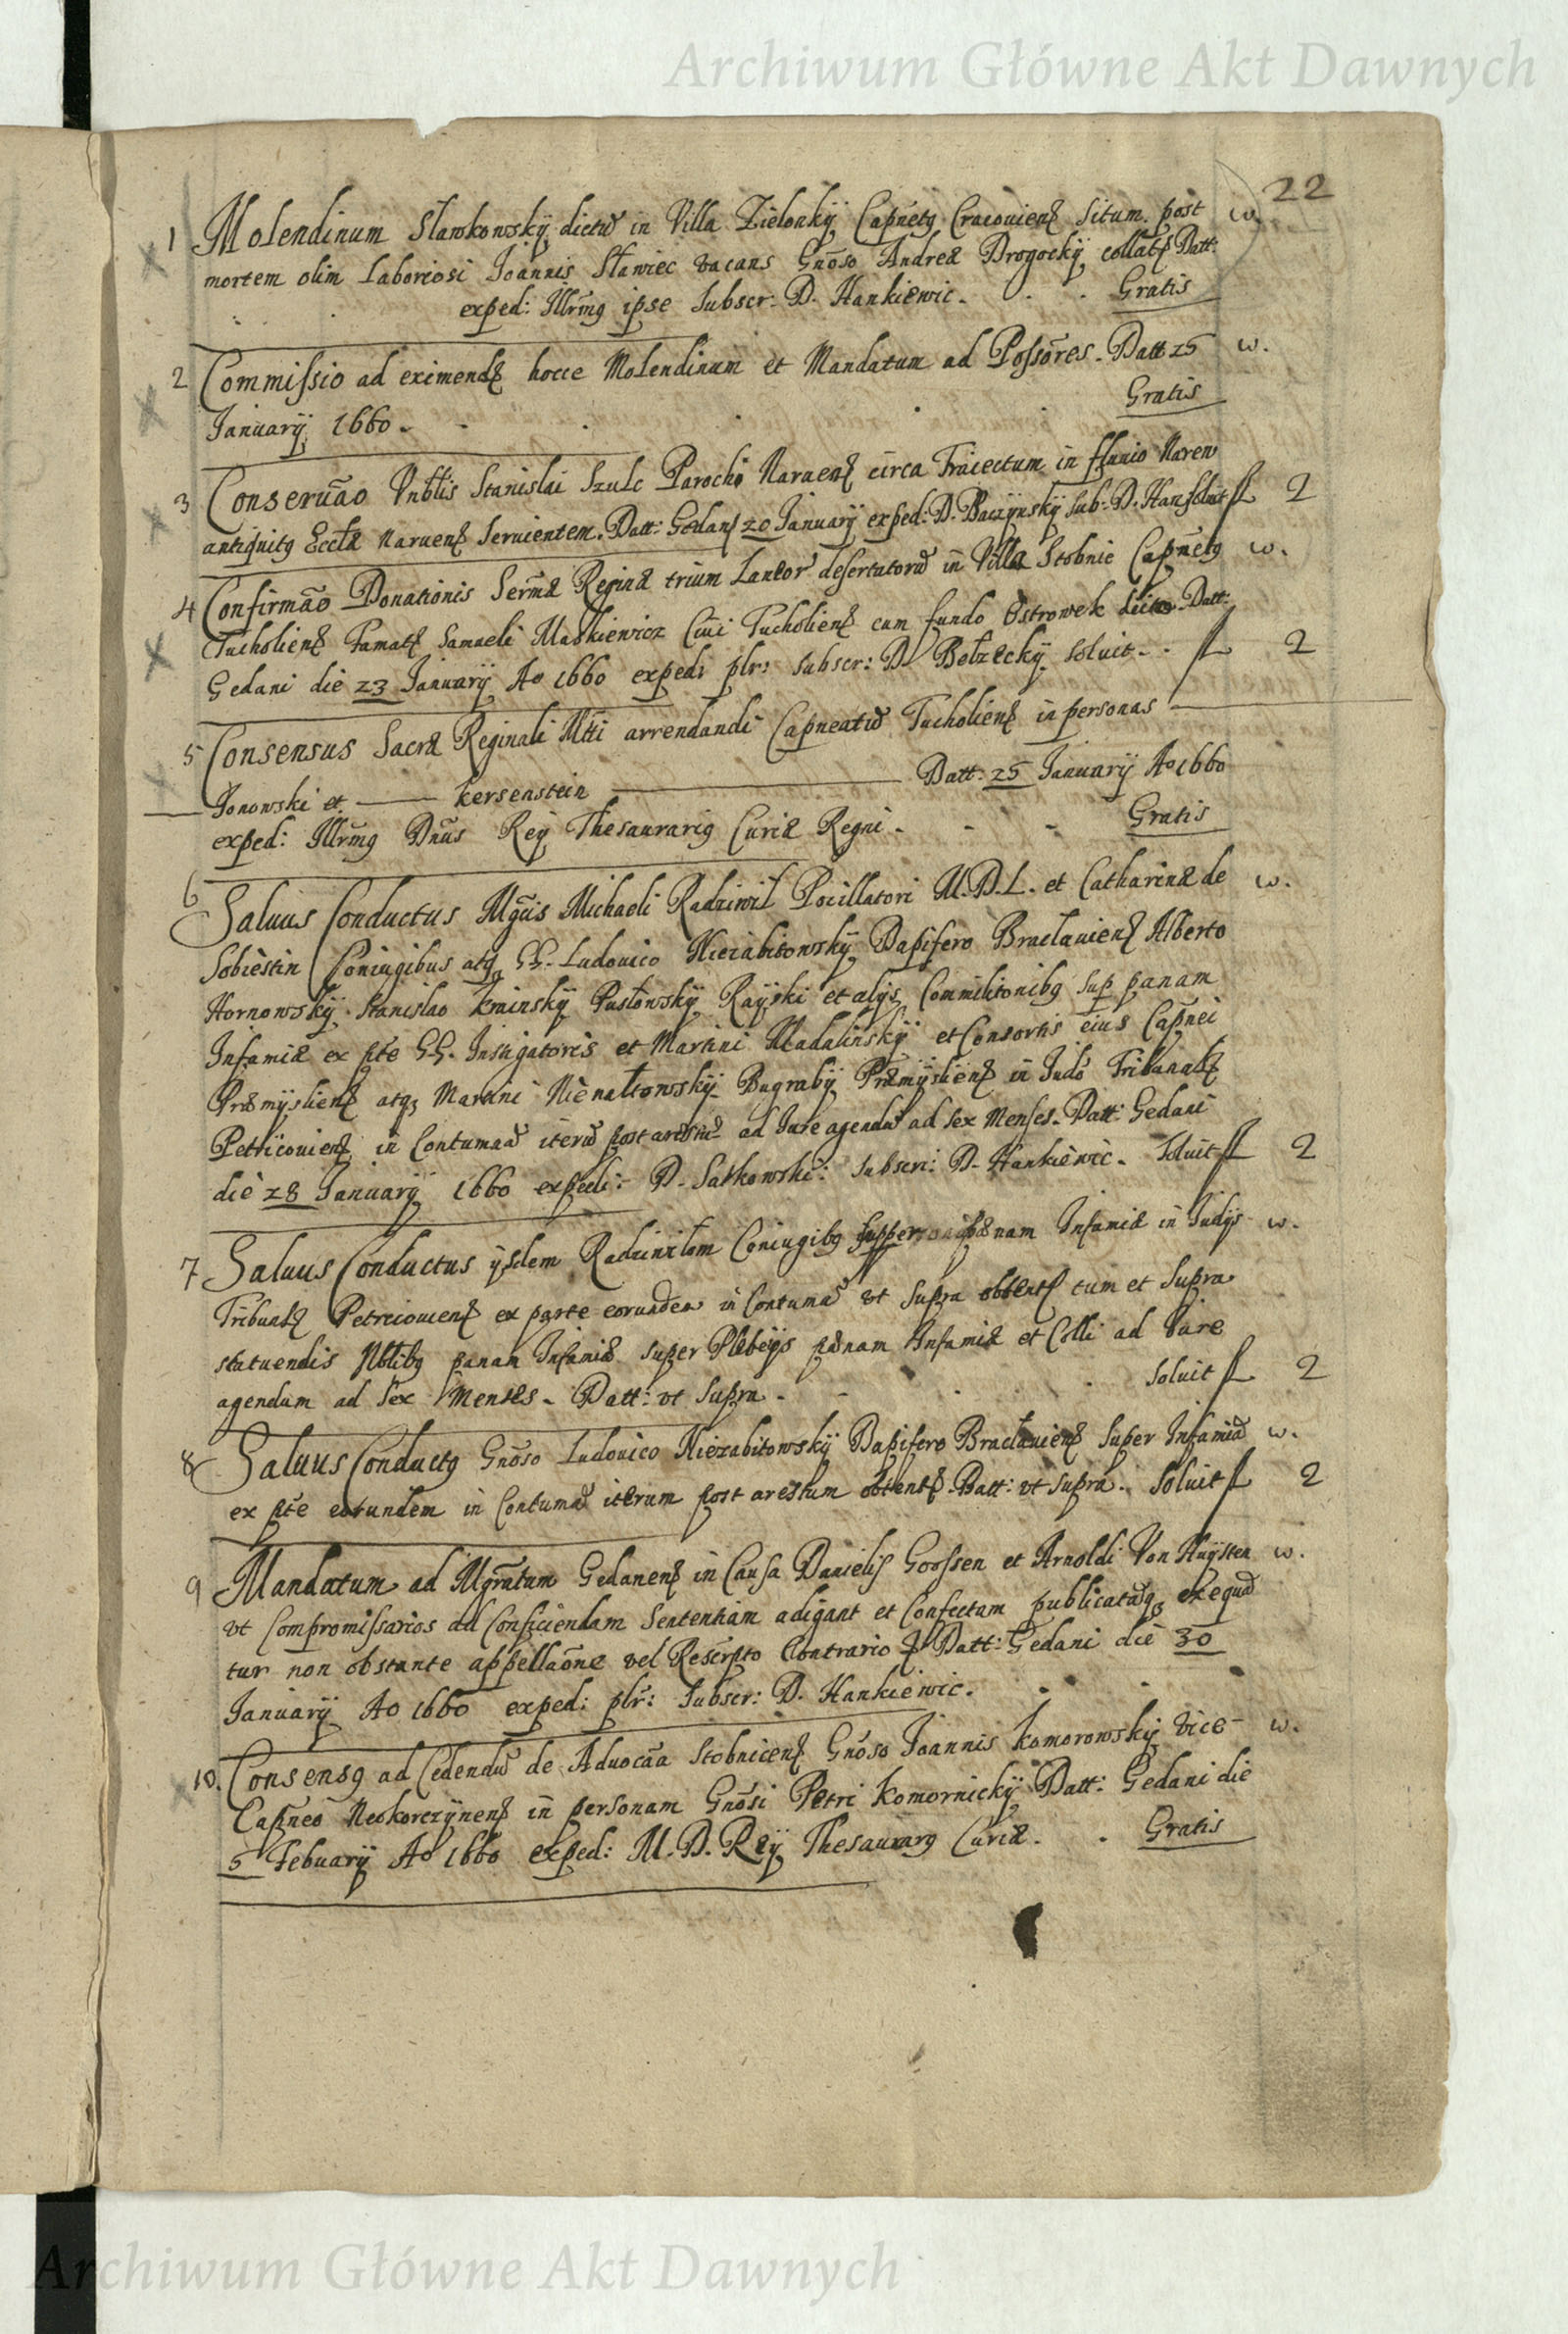 Archiwum Główne Akt Dawnych
22
1 Molendinum Slawkowskÿ dictũ in Villa Zielonkÿ Capnẽtg Cracouienß Situm. post w.
mortem olim Laboriosi Joannis Sławiec vacans Gnõso Andreæ Drogockÿ collatß Datt:
exped: Illrm̃g ipse Subscr: D. Hankiewic. Gratis
2 Commissio ad eximendß hocce Molendinum et Mandatum ad Possõres. Datt 25 w.
Januarÿ 1660. Gratis
3 Conseruão Vnblis Stanislai Szulc Parochi Naruenß circa Traiectum in fluuio Narew
antiquitg Eccłæ Naruenß Seruientem. Datt: Gedanß 20 Januarÿ exped: D. Baczÿnskÿ Sub: D. Han soluit fl 2
4 Confirmão Donationis Serm̃æ Reginæ trium Laneor̃ desertatorũ in Villa Stobnie Capnẽtg w.
Tucholienß Famatß Samueli Maskiewicz Ciui Tucholienß cum fundo Ostrowek dicto. Datt:
Gedani die 23 Januarÿ Ao 1660 exped: plr: Subscr: D. Bełzeckÿ Soluit. fl 2
5 Consensus Sacræ Reginali Mtti arrendandi Capneatũ Tucholienß in personas
Jonowski et Kersenstein Datt. 25 Januarÿ Ao 1660
exped: Illrm̃g Dnũs Reÿ Thesaurarig Curiæ Regni. Gratis
6 Saluus Conductus Mgcis Michaeli Radziwił Pocillatori M.D.L. et Catharinæ de w.
Sobiestin Coniugibus atqꝫ GG. Ludouico Niezabitowskÿ Dapifero Bracłauienß Alberto
Hornowskÿ Stanislao Kminskÿ Pusłowskÿ Raÿski et alÿs Commilitonibg sup pænam
Infamiæ ex pte GG. Instigatoris et Martini Madalinskÿ et Consortis eius Capnei
Præmÿslienß atqꝫ Martini Nienałtowskÿ Bugrabÿ Præmÿslienß in Judo Tribunalß
Petricouienß in Contumaã iterũ post arestũ ad Jure agendũ ad sex Menses. Datt: Gedani
die 28 Januarÿ 1660 exped: D. Satkowski: Subscr: D. Hankiewic. Soluit fl 2
7 Saluus Conductus ÿsdem Radziwiłom Coniugibg super pænam Infamiæ in Judÿs w.
Tribunalß Petricouienß ex parte eorundem in Contumã vt Supra obtentß tum et Supra
statuendis Nblibg pænam Infamiæ super Plebeÿs pænam Infamiæ et Colli ad Jure
agendum ad Sex Menses. Datt: vt Supra. Soluit fl 2
8 Saluus Conductg Gnõso Ludouico Niezabitowskÿ Dapifero Bracłauienß Super Infamiã w.
ex pte eorundem in Contumã iterum post arestum obtentß. Datt: vt supra. Soluit fl 2
9 Mandatum ad Mgrãtum Gedanenß in Causa Danielis Goossen et Arnoldi Von Huÿsten w.
vt Compromissarios ad Conficiendam Sententiam adigant et Confectam publicatãqꝫ exequã
tur non obstante appellaõne vel Rescrpto Contrario Datt: Gedani die 30
Januarÿ Ao 1660 exped: plr: Subscr: D. Hankiewic.
10. Consensg ad Cedendũ de Aduocãa Stobnicenß Gnõso Joannis Komorowskÿ vice w.
Capneo Neokorczÿnenß in personam Gnõsi Petri Komornickÿ Datt: Gedani die
5 Febuarÿ Ao 1660 exped: M. D. Reÿ Thesaurarg Curiæ. Gratis
Archiwum Główne Akt Dawnych